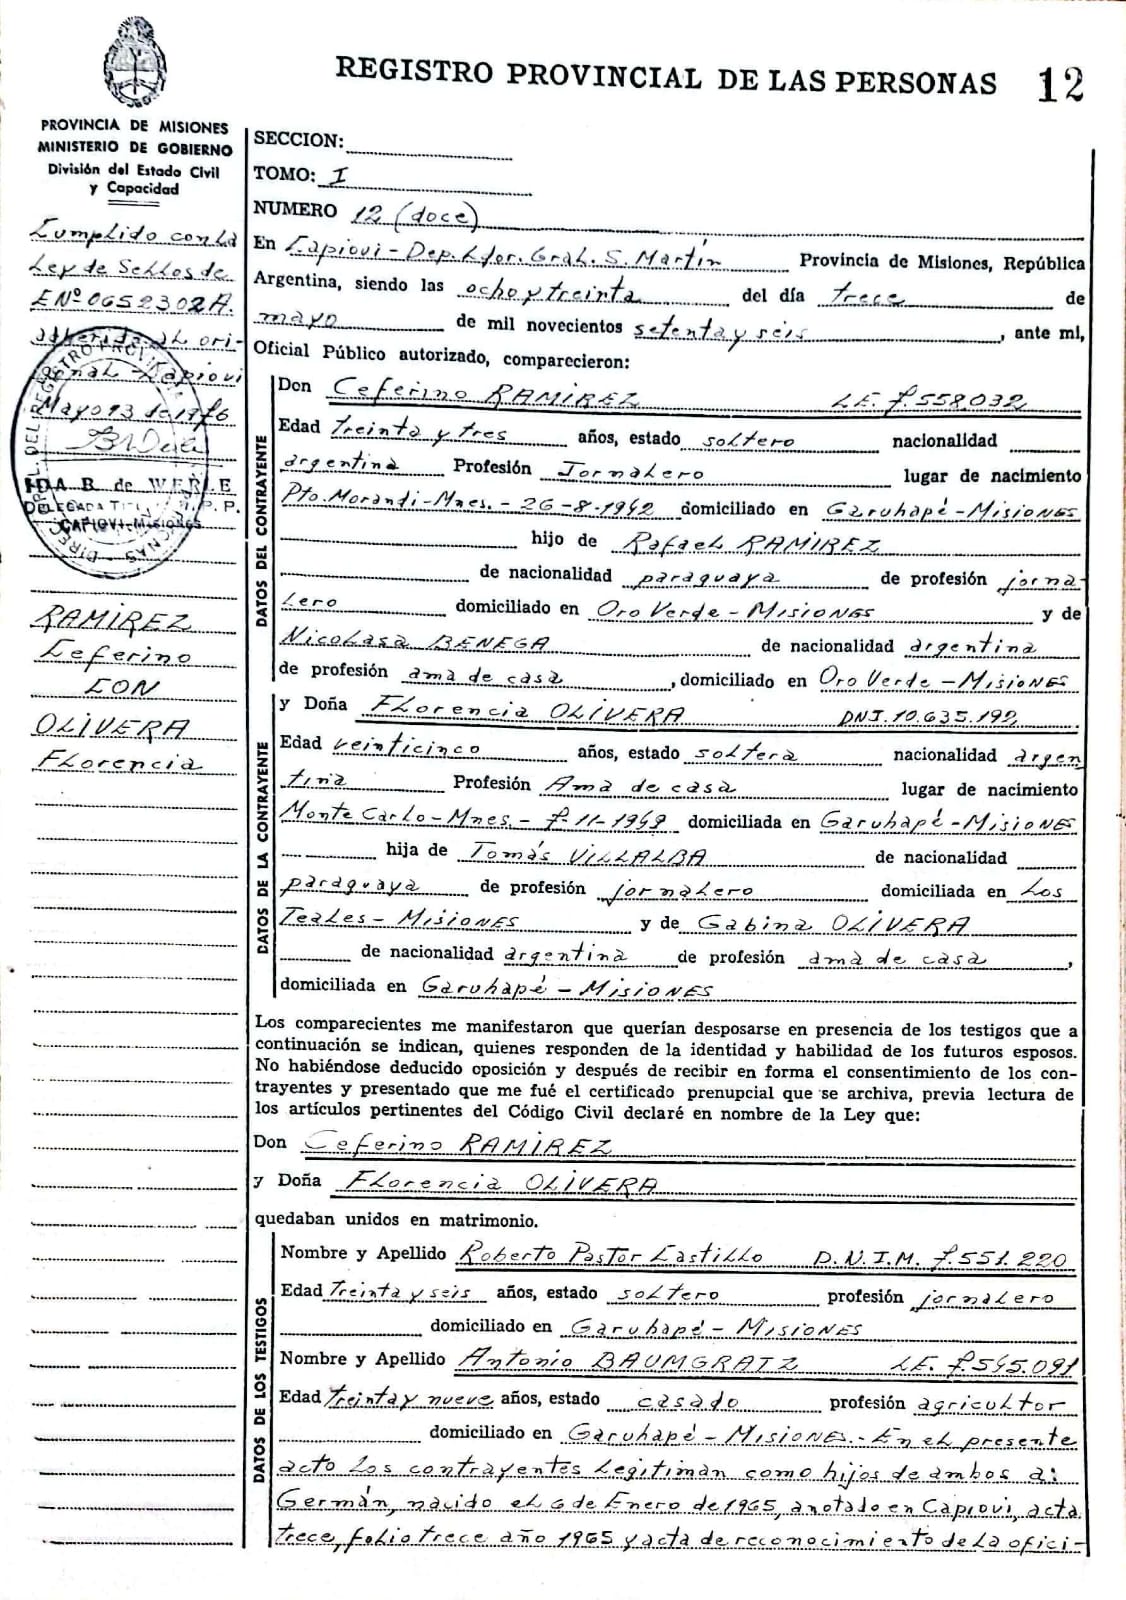 REGISTRO PROVINCIAL DE LAS PERSONAS 12
PROVINCIA DE MISIONES
MINISTERIO DE GOBIERNO
División del Estado Civil
y Capacidad
Cumplido con la
Ley de Sellos de
E Nº 0652302A.
adherida al ori-
ginal - Capiovi
Mayo 13 de 1976
IDA B. de WERLE
DELEGADA TIT. R. P. P.
CAPIOVI-Misiones
RAMIREZ
Ceferino
CON
OLIVERA
Florencia
SECCION:
TOMO: I
NUMERO 12 (doce)
En Capiovi - Dep. Ldor. Gral. S. Martín Provincia de Misiones, República
Argentina, siendo las ocho y treinta del día trece de
mayo de mil novecientos setenta y seis, ante mi,
Oficial Público autorizado, comparecieron:
DATOS DEL CONTRAYENTE
Don Ceferino RAMIREZ L.E. 7.558.032
Edad treinta y tres años, estado soltero nacionalidad
argentina Profesión Jornalero lugar de nacimiento
Pto. Morandi - Mnes. - 26-8-1942 domiciliado en Garuhapé - Misiones
hijo de Rafael RAMIREZ
de nacionalidad paraguaya de profesión jorna-
lero domiciliado en Oro Verde - Misiones y de
Nicolasa BENEGA de nacionalidad argentina
de profesión ama de casa, domiciliado en Oro Verde - Misiones
DATOS DE LA CONTRAYENTE
y Doña Florencia OLIVERA DNI. 10.635.192
Edad veinticinco años, estado soltera nacionalidad argen
tina Profesión Ama de casa lugar de nacimiento
Monte Carlo - Mnes. - 7-11-1949 domiciliada en Garuhapé - Misiones
hija de Tomás VILLALBA de nacionalidad
paraguaya de profesión jornalero domiciliada en Los
Teales - Misiones y de Gabina OLIVERA
de nacionalidad argentina de profesión ama de casa,
domiciliada en Garuhapé - Misiones
Los comparecientes me manifestaron que querían desposarse en presencia de los testigos que a
continuación se indican, quienes responden de la identidad y habilidad de los futuros esposos.
No habiéndose deducido oposición y después de recibir en forma el consentimiento de los con-
trayentes y presentado que me fué el certificado prenupcial que se archiva, previa lectura de
los artículos pertinentes del Código Civil declaré en nombre de la Ley que:
Don Ceferino RAMIREZ
y Doña Florencia OLIVERA
quedaban unidos en matrimonio.
DATOS DE LOS TESTIGOS
Nombre y Apellido Roberto Pastor Castillo D.N.I.M. 7.551.220
Edad Treinta y seis años, estado soltero profesión jornalero
domiciliado en Garuhapé - Misiones
Nombre y Apellido Antonio BAUMGRATZ L.E. 7.545.091
Edad treinta y nueve años, estado casado profesión agricultor
domiciliado en Garuhapé - Misiones. - En el presente
acto los contrayentes legitiman como hijos de ambos a:
Germán, nacido el 6 de Enero de 1965, anotado en Capiovi, acta
trece, folio trece año 1965 y acta de reconocimiento de la ofici-